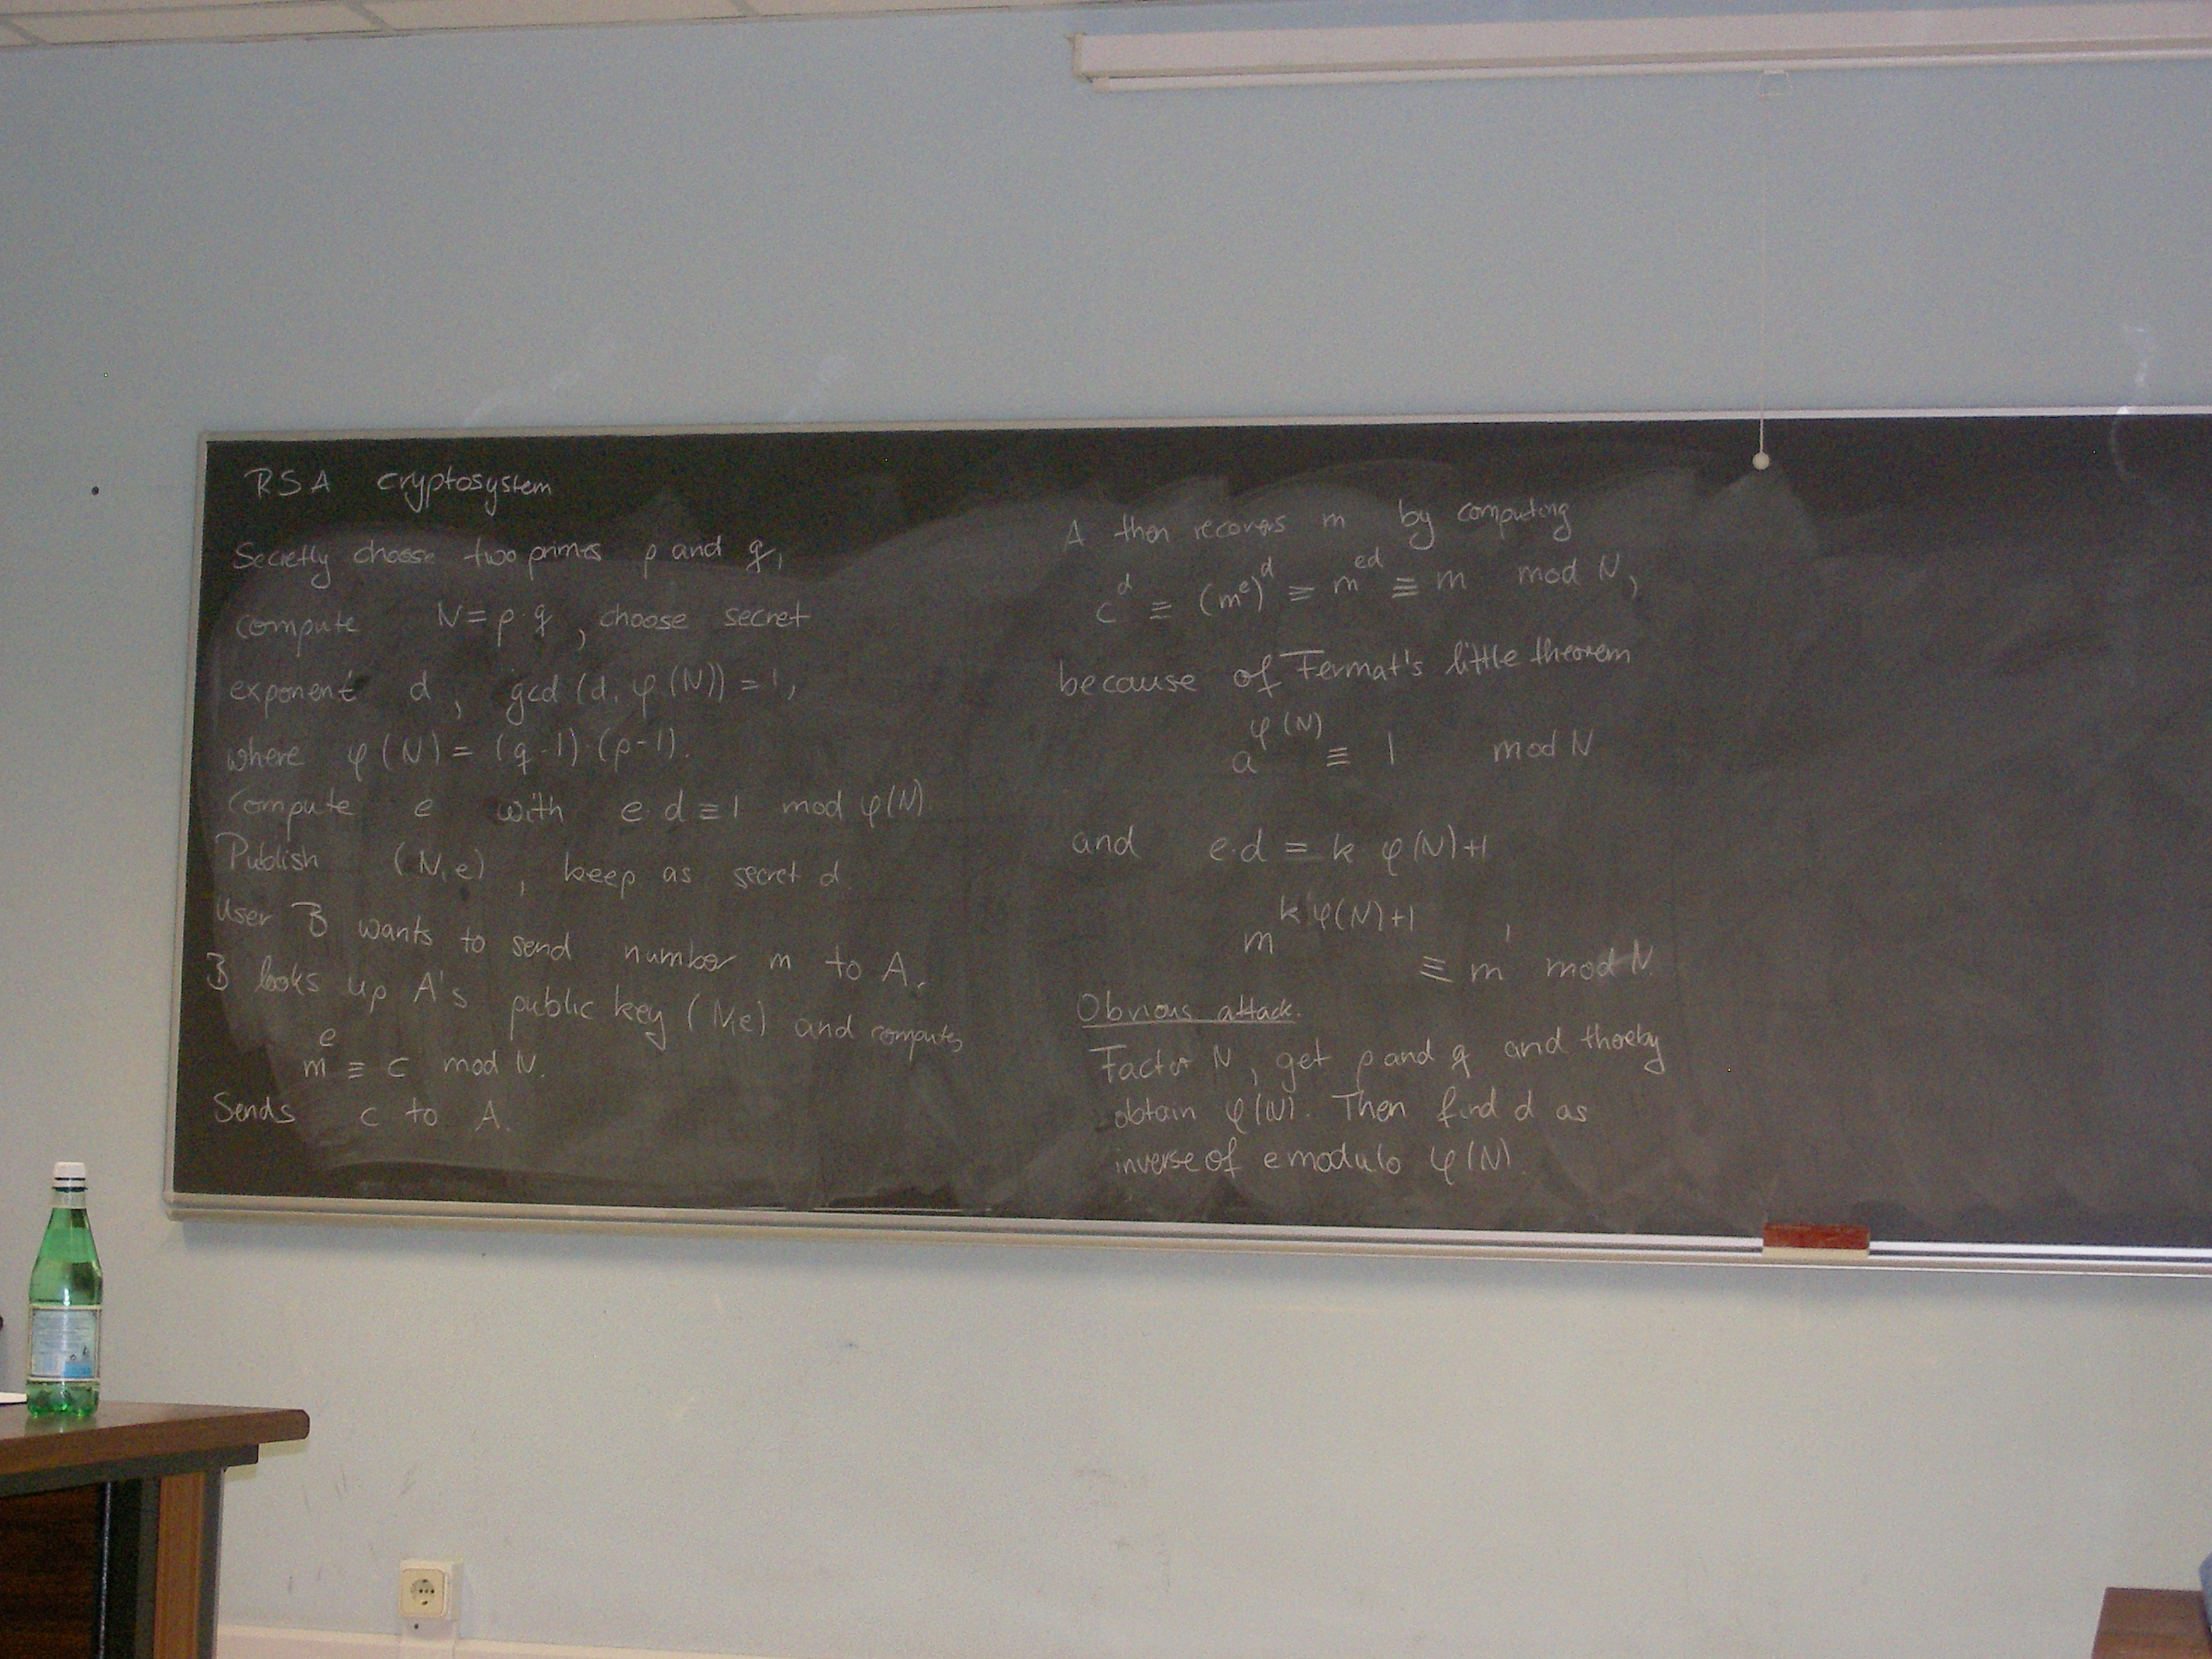 RSA cryptosystem
Secretly choose two primes p and q,
compute N = p·q, choose secret
exponent d, gcd (d, φ(N)) = 1,
where φ(N) = (q-1)·(p-1).
Compute e with e·d ≡ 1 mod φ(N)
Publish (N,e), keep as secret d.
User B wants to send number m to A.
B looks up A's public key (N,e) and computes
m^e ≡ c mod N.
Sends c to A.
A then recovers m by computing
c^d ≡ (m^e)^d ≡ m^ed ≡ m mod N,
because of Fermat's little theorem
a^φ(N) ≡ 1 mod N
and e·d = k φ(N)+1
m^k·φ(N)+1 ≡ m^1 mod N.
Obvious attack.
Factor N, get p and q and thereby
obtain φ(N). Then find d as
inverse of e modulo φ(N).